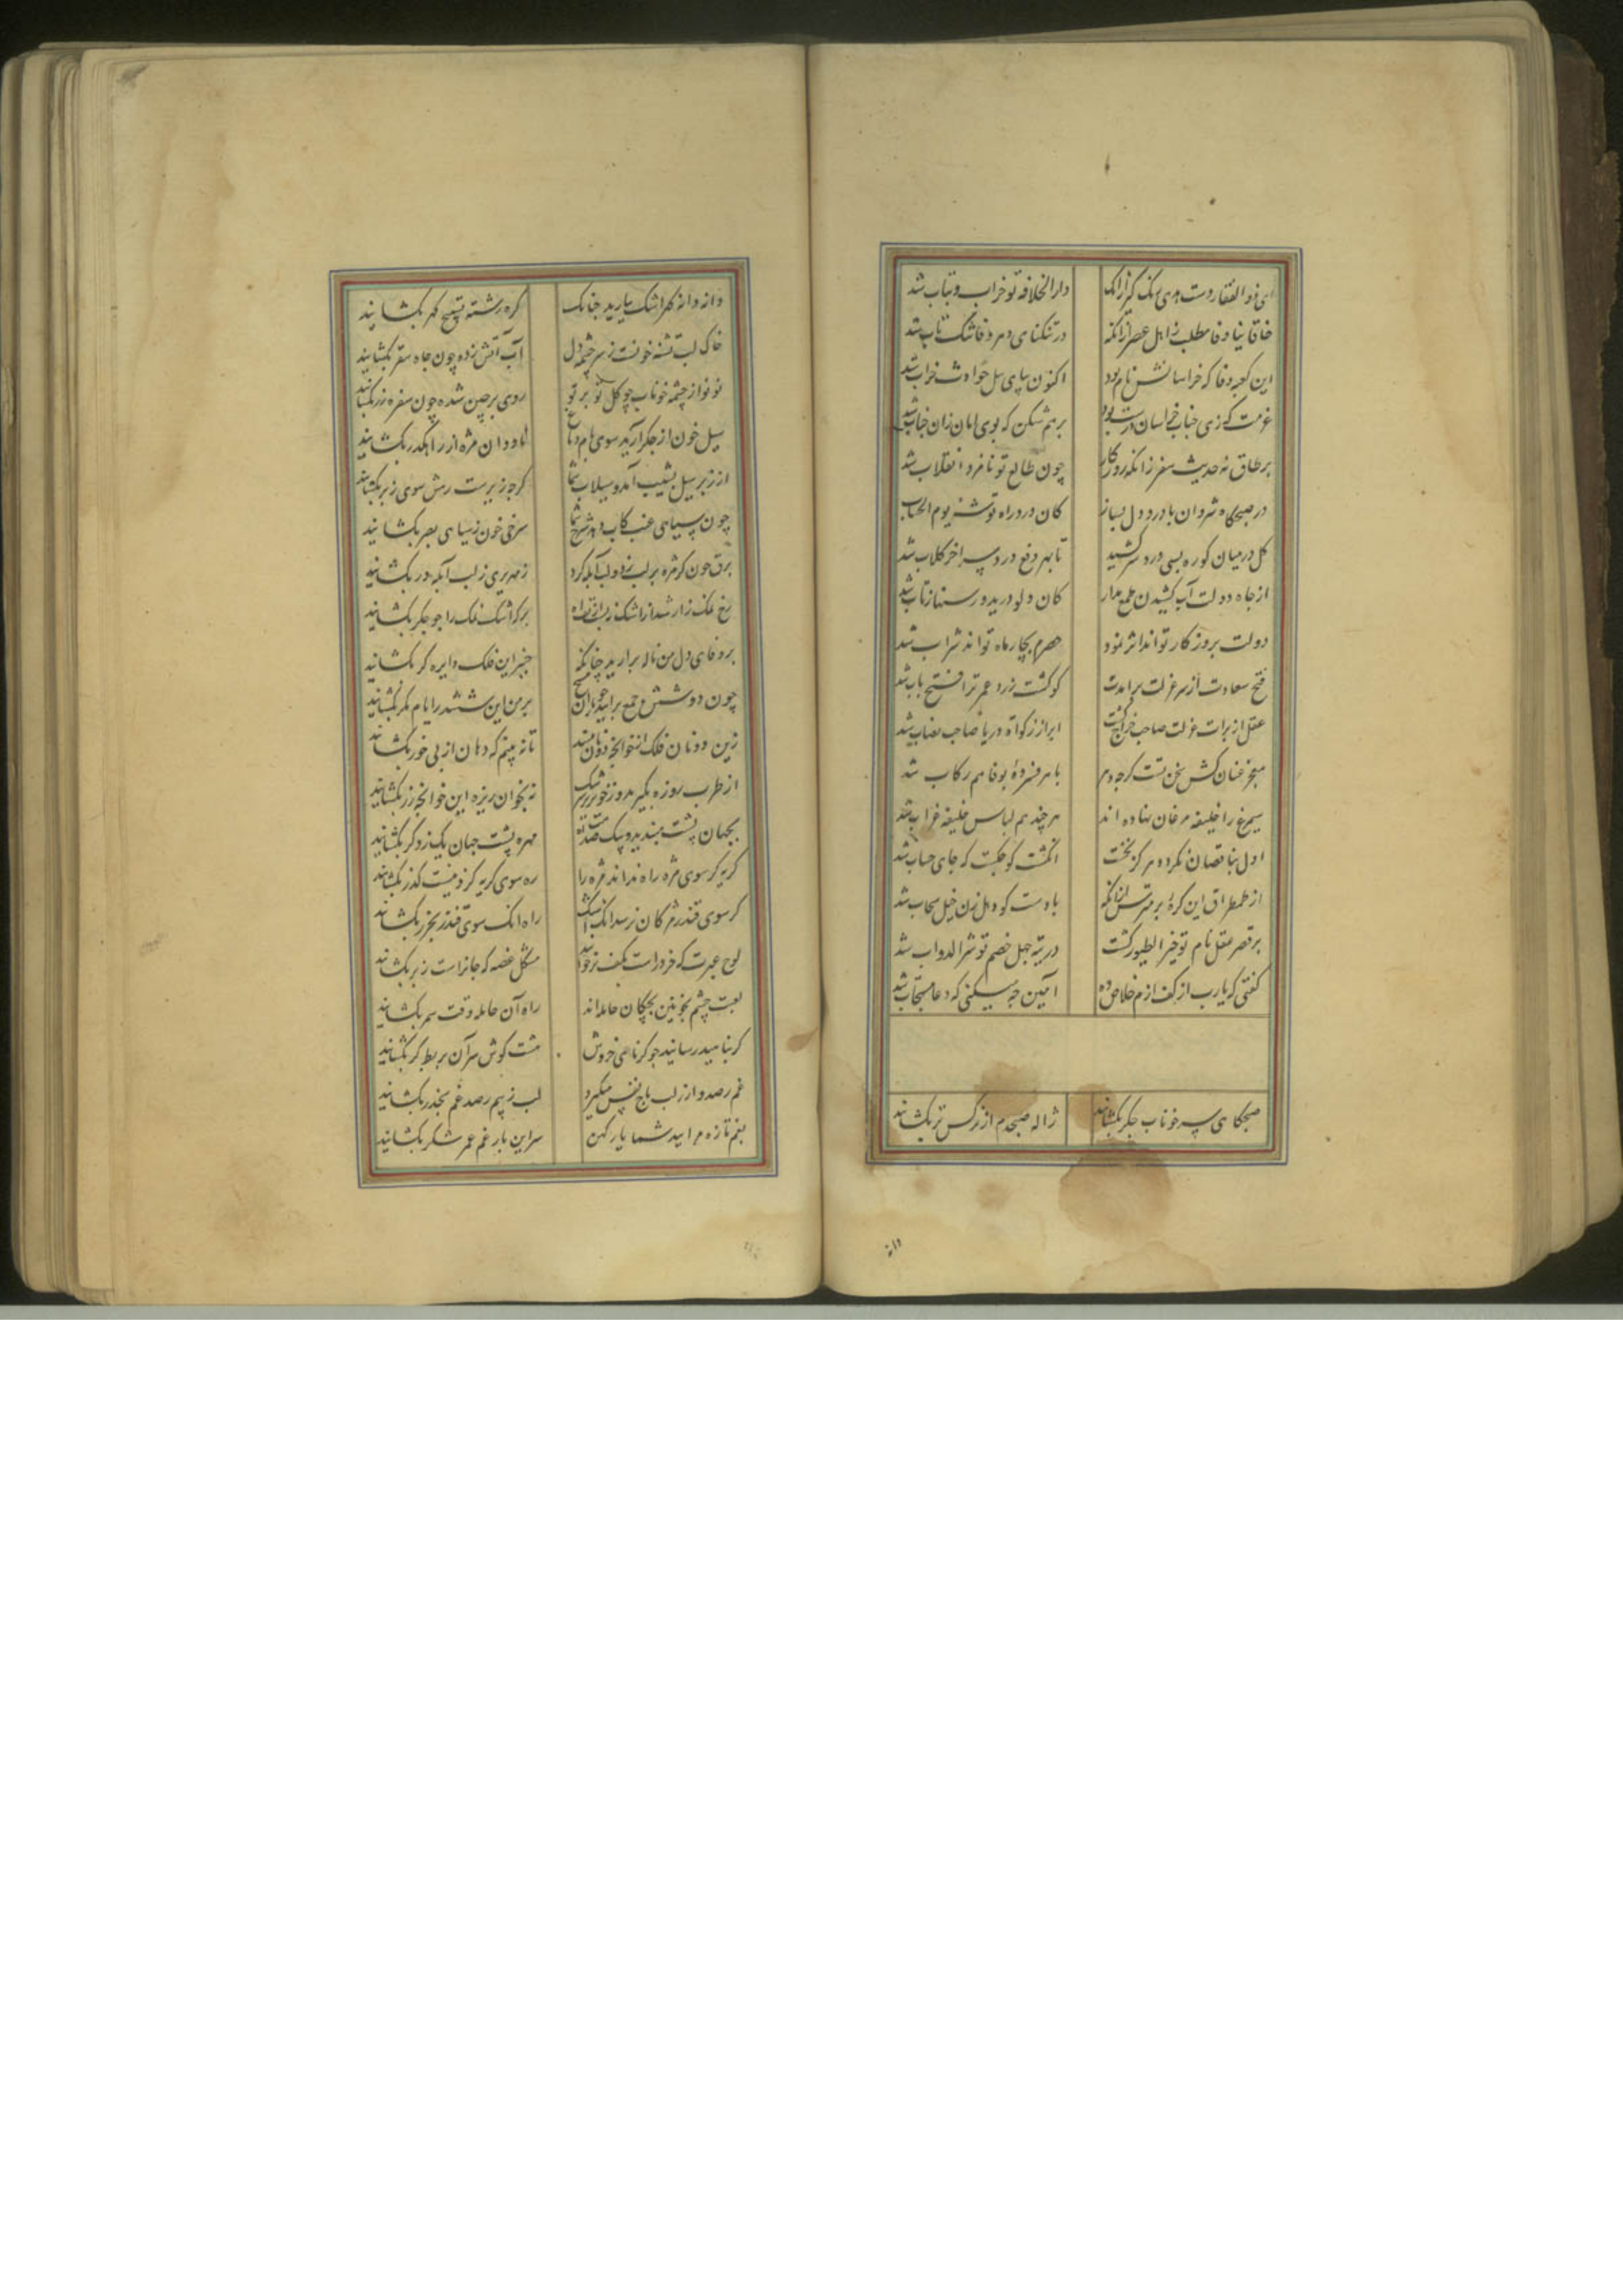 ای ذوالفقار دست هدی زنگ گیر زانک دارالخلافه تو خراب و یباب شد
خاقانیا وفا مطلب ز اهل عصر ازانکه در تنکنای دهر وفا تنک یاب شد
این کعبه وفا که خراسانش نام بود اکنون بپای پیل حوادث خراب شد
عزمت که زی جناب خراسان درست بود برهم شکن که بوی امان زان جناب شد
بر طاق نه حدیث سفر زانکه روزکار چون طالع تو نامزد انقلاب شد
در حبسکاه شروان با درد دل بساز کان درد راه توشه یوم الحساب شد
کل در میان کوره بسی درد سر کشید تا بهر دفع درد سر اخر کلاب شد
از چاه دولت آب کشیدن طمع مدار کان دلو درید و رسنها ز تاب شد
دولت بروزکار تواند اثر نمود حصرم بچار ماه تواند شراب شد
فتح سعادت از سر عزلت برآیدت کو کشت زرد عمر ترا فتح باب شد
عقل از برات عزلت صاحب خراج کشت ابر از زکوة دریا صاحب نصاب شد
معجز عنان کش سخن تست کرچه دهر با هر فسرده بوفا هم رکاب شد
سیمرغ را خلیفه مرغان نهاده اند هر چند هم لباس خلیفه غراب شد
اول بناقصان نکرد دهر کز نخست انکشت کوچکست که جای حساب شد
از طمطراق این کره بر مترس ازانکه بادست کو دهل زن خیل سحاب شد
بر قصر عقل نام تو خیر الطیور کشت در تیه جهل خصم تو شر الدواب شد
کفتی که یارب از کف آزم خلاص ده آمین چه میکنی که دعا مستجاب شد
صبحکاهی سر خوناب جکر بکشائید ژاله صبحدم از نرکس تر بکشائید
دانه دانه کهر اشک ببارید چنانک کره رشته تسبیح کهر بکشائید
خاک لب تشنه خونست ز سرچشمه دل آب آتش زده چون چاه سقر بکشائید
نونو از چشمه خوناب چو کل تو بر تو روی پرچین شده چون سفره زر بکشائید
سیل خون از جکر آرید سوی بام دماغ ناودان مژه را راه کذر بکشائید
از زبر سیل بشیب آمد و سیلاب شما کرچه زیرست رهش سوی زبر بکشائید
چون سیاهی عنب کاب دهد سرخ شما سرخی خون ز سیاهی بصر بکشائید
برق خون کز مژه بر لب زد و لب آبله کرد زمهریری ز لب آبله ور بکشائید
رخ نمک زار شد از اشک بر کز اشک نمک را چو جکر بکشائید
بر وفای دل من ناله برارید چنانکه چنبر این فلک دایره کر بکشائید
چون دوشش جمع برآیید چو یاران مسیح بر من این ششدر ایام مکر بکشائید
زین دونان فلک از خوانچه دونان بینند تا نه بینم که دهان از پی خور بکشائید
از طرب روزه بکیرید و ز خون سرشک نه بخوان ریزه این خوانچه زر بکشائید
بجهان پشت مبندید و بیک صدمت آه مهره پشت جهان یک ز دکر بکشائید
کریه کر سوی مژه راه نداند مژه را ره سوی کریه کزو نیست کذر بکشائید
کر سوی قندز مژکان نرسد آنک اشک راه آنک سوی قندز بخزر بکشائید
لوح عبرت که خرد راست بکف برخوانید مشکل غصه که جانراست ز بر بکشائید
لعبت چشم بخونین بچکان حامله اند راه آن حامله وقت سحر بکشائید
کر بناهید رسانید چو کرنای خروش هشت کوش سر آن بربط کر بکشائید
غم رصد وار ز لب باج نفس میکیرد لب ز بیم رصد غم بحذر بکشائید
بغم تازه مرایید شما یار کهن سر این بار غم عمر شکر بکشائید